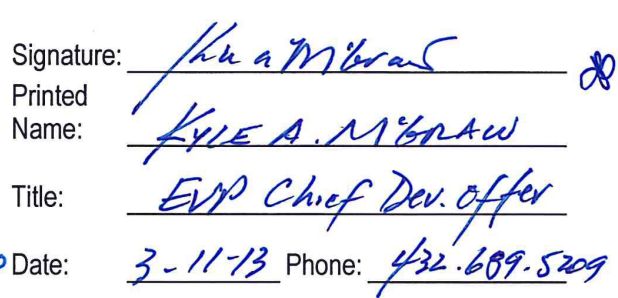 Signature: Kyle A McGraw
Printed
Name: KYLE A. McGRAW
Title: EVP Chief Dev. offer
Date: 3-11-13 Phone: 432.689.5209